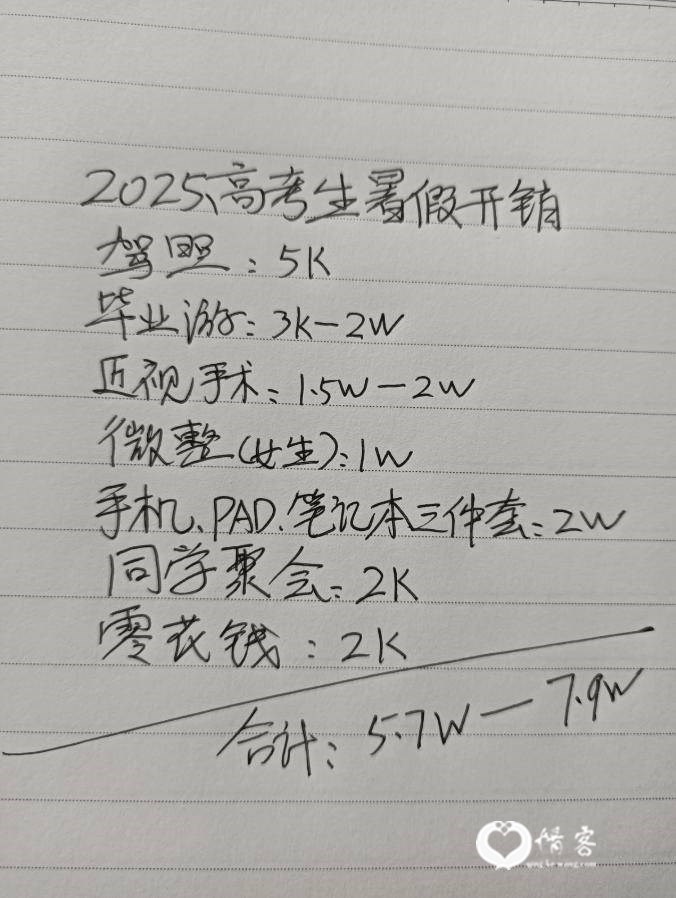 2025高考生暑假开销
驾照：5K
毕业游：3K—2W
近视手术：1.5W—2W
微整(女生)：1W
手机、PAD、笔记本三件套：2W
同学聚会：2K
零花钱：2K
合计：5.7W—7.9W
情客
qingkewang.com